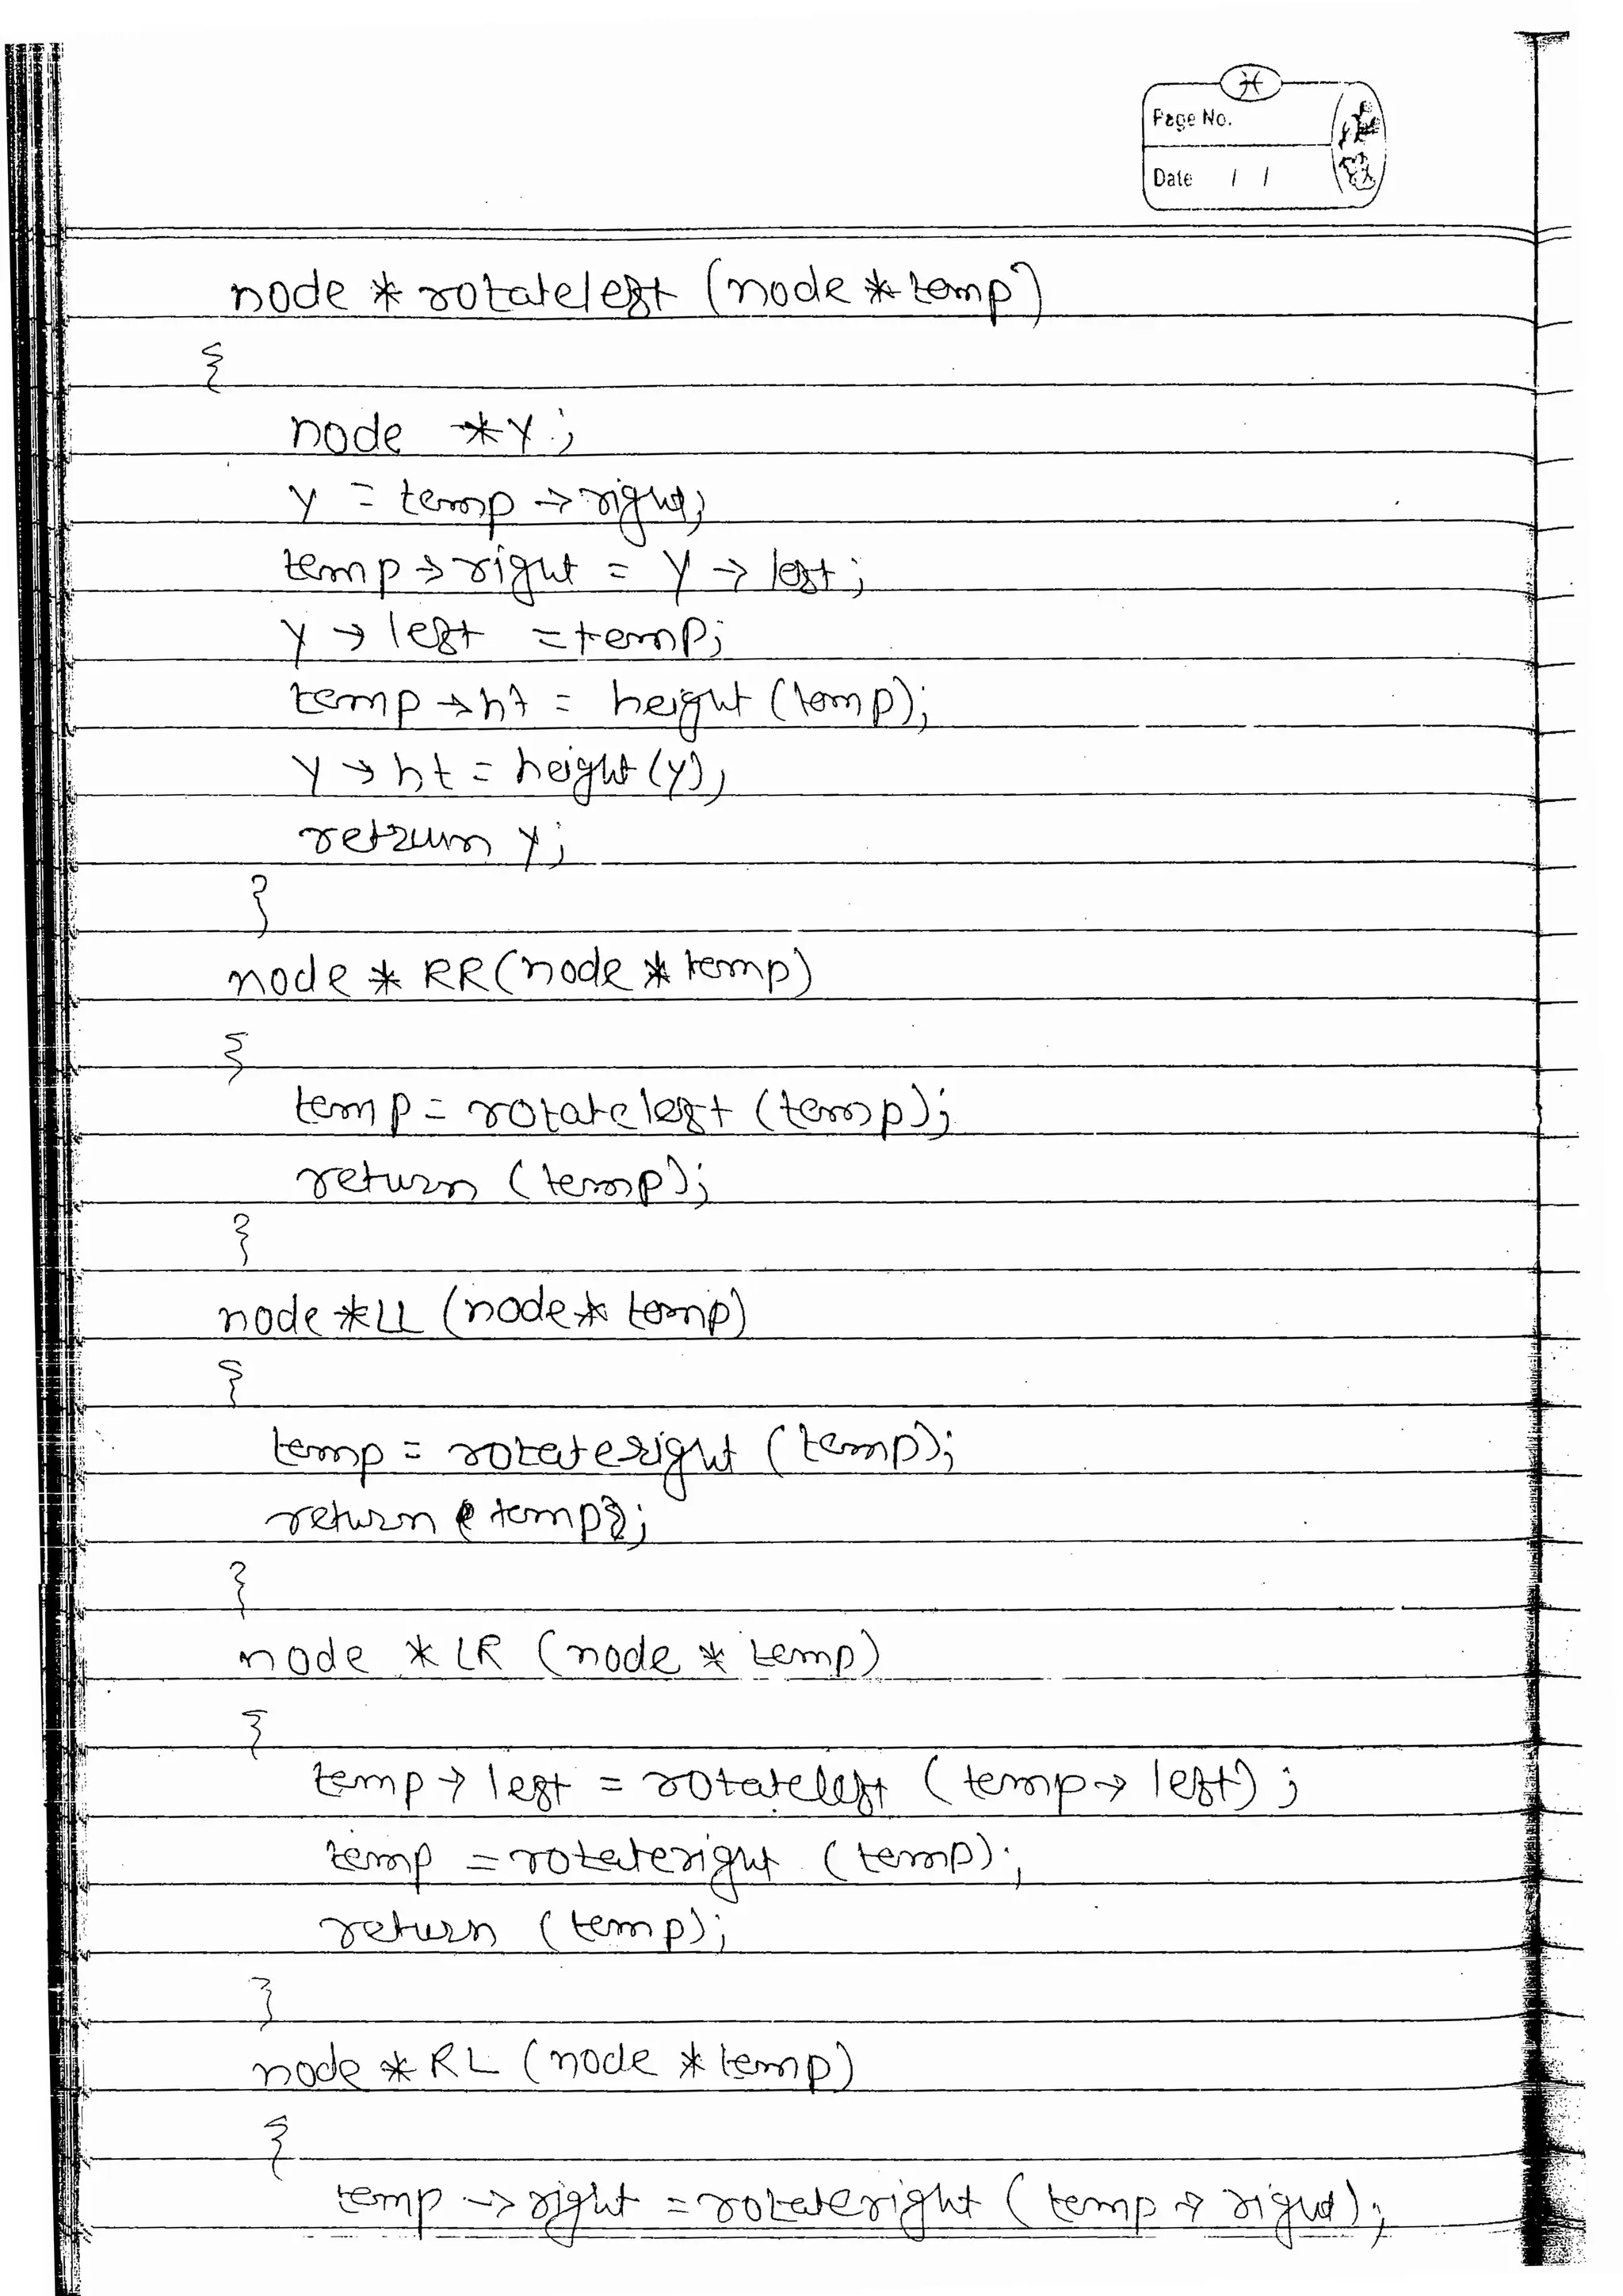 Page No.
Date / /
node * rotateleft (node * temp)
{
node *y;
y = temp → right;
temp → right = y → left;
y → left = temp;
temp → ht = height (temp);
y → ht = height (y);
retrun y;
}
node * RR (node * temp)
{
temp = rotateleft (temp);
return (temp);
}
node * LL (node * temp)
{
temp = rotateright (temp);
return (temp);
}
node * LR (node * temp)
{
temp → left = rotateleft (temp → left);
temp = rotateright (temp);
return (temp);
}
node * RL (node * temp)
{
temp → right = rotateright (temp → right);